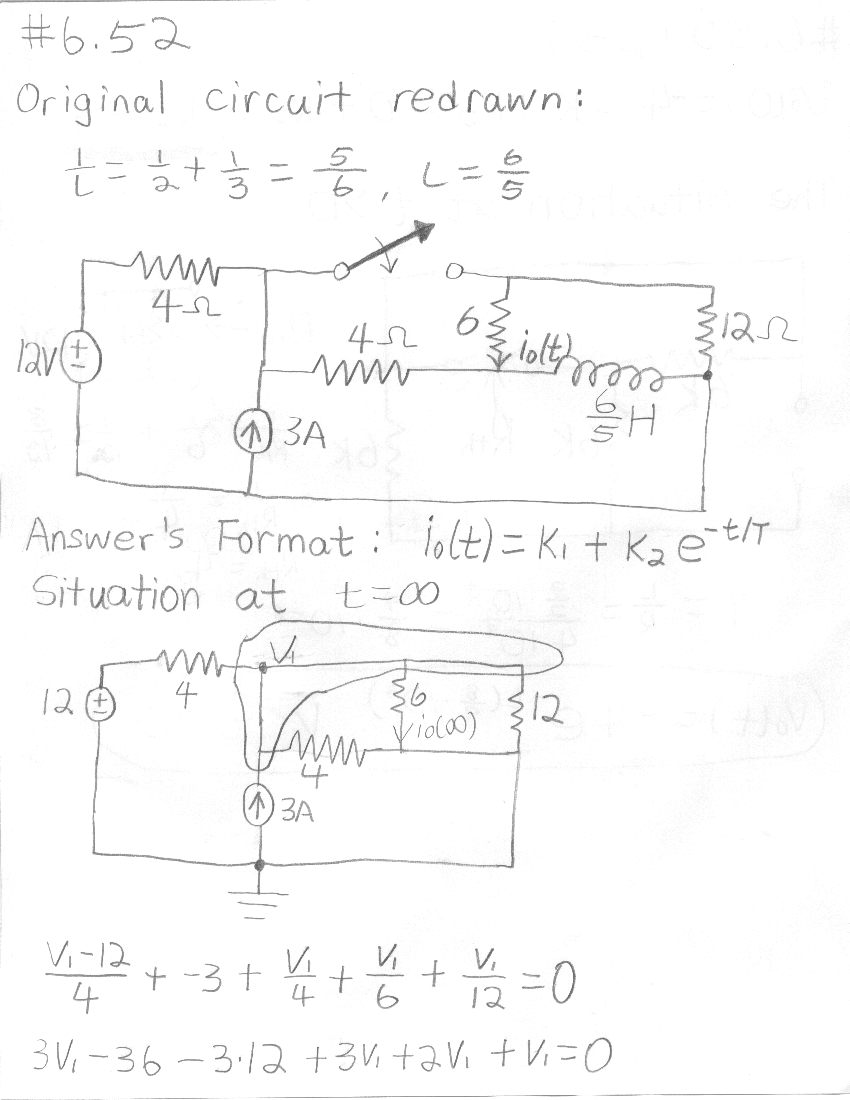 #6.52
Original circuit redrawn:
1/L = 1/2 + 1/3 = 5/6, L = 6/5
4Ω
12V
4Ω
6
i₀(t)
12Ω
6/5 H
3A
Answer's Format: i₀(t) = K₁ + K₂ e^(-t/T)
Situation at t=∞
V₁
4
12
6
i₀(∞)
12
4
3A
(V₁-12)/4 + -3 + V₁/4 + V₁/6 + V₁/12 = 0
3V₁ - 36 - 3·12 + 3V₁ + 2V₁ + V₁ = 0